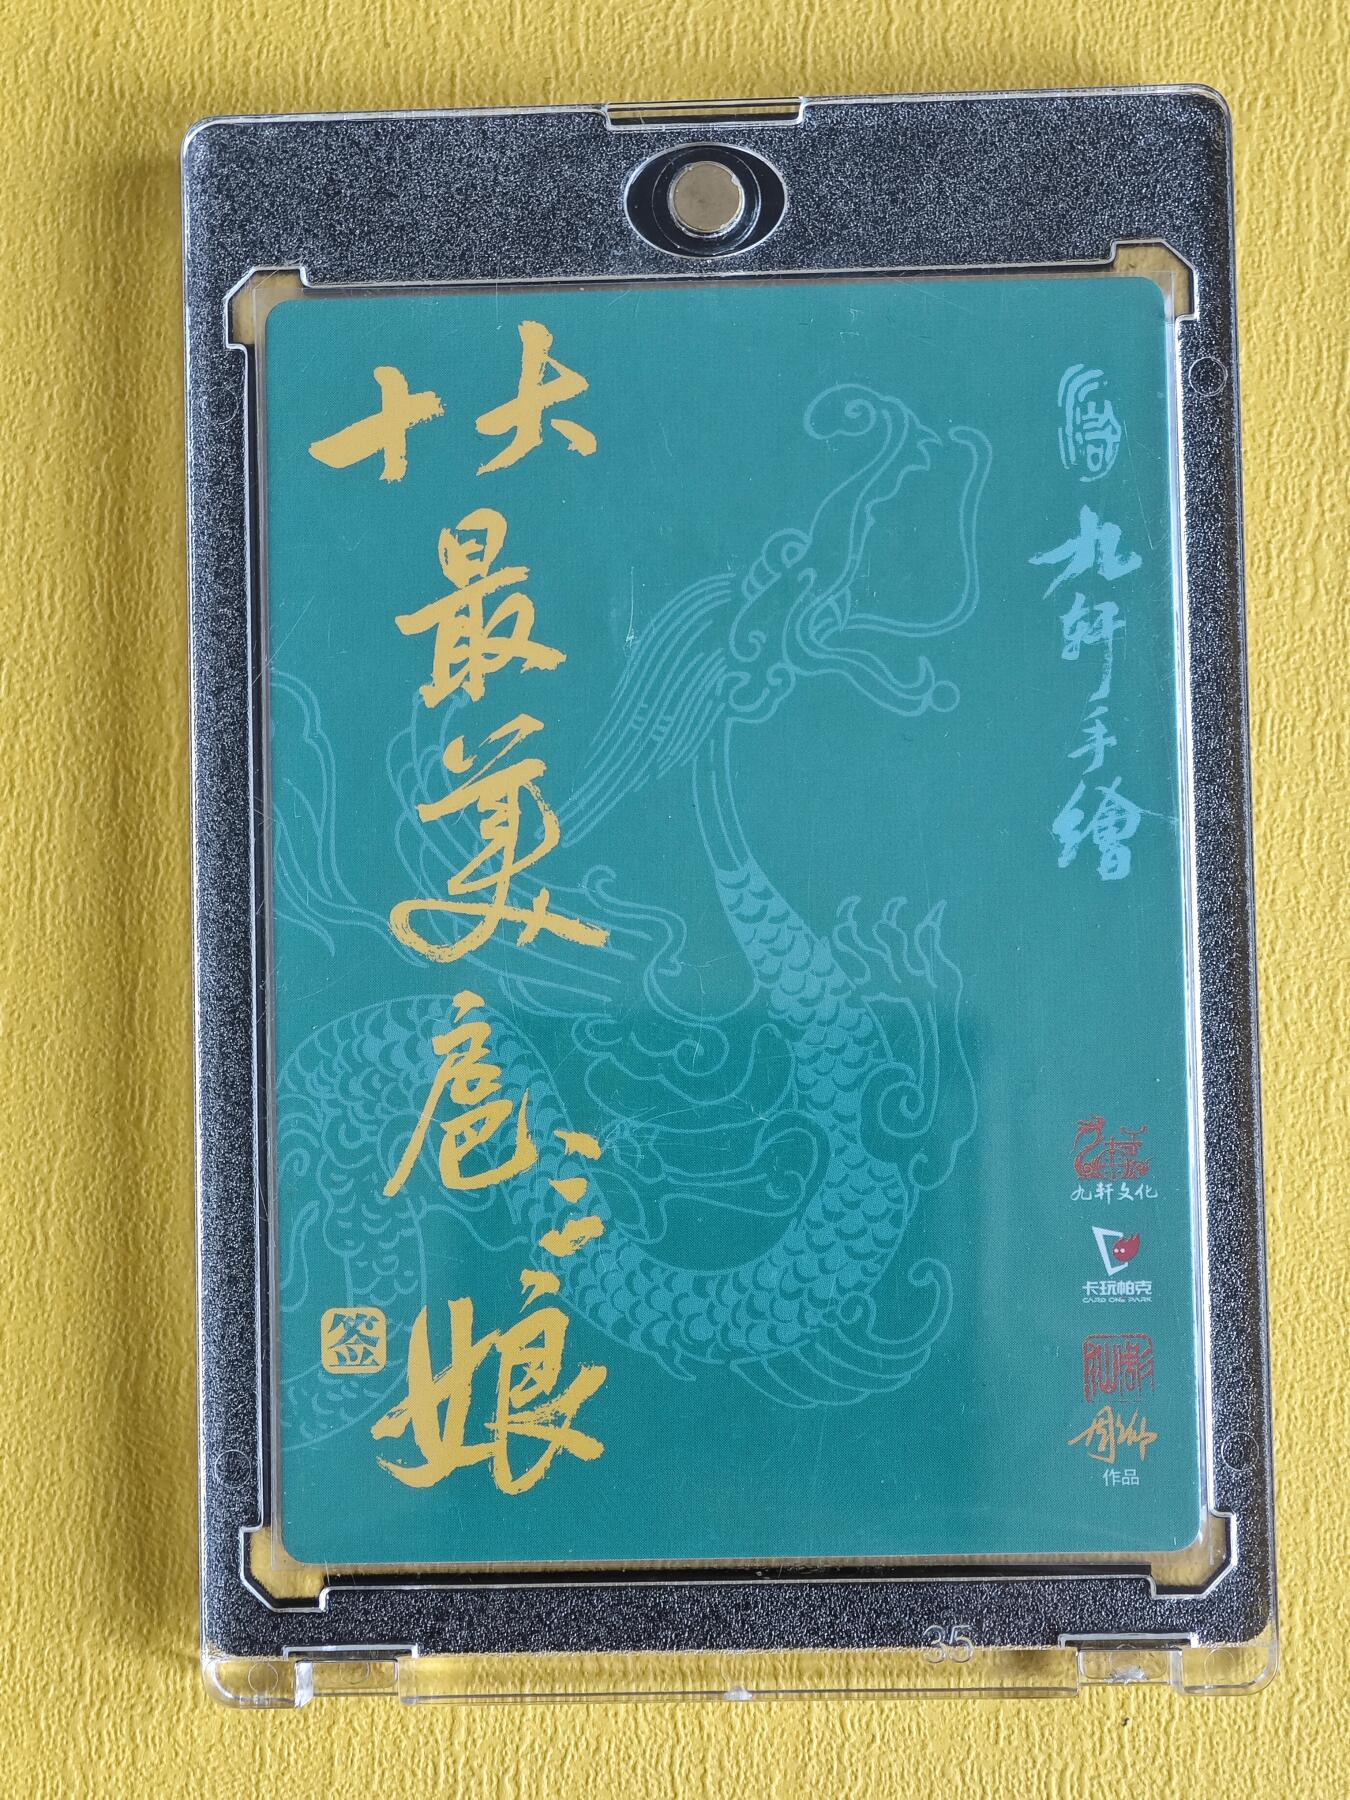 十大最美扈三娘
签
九轩手繪
九轩文化
卡玩帕克
CARD ONE PARK
作品
35